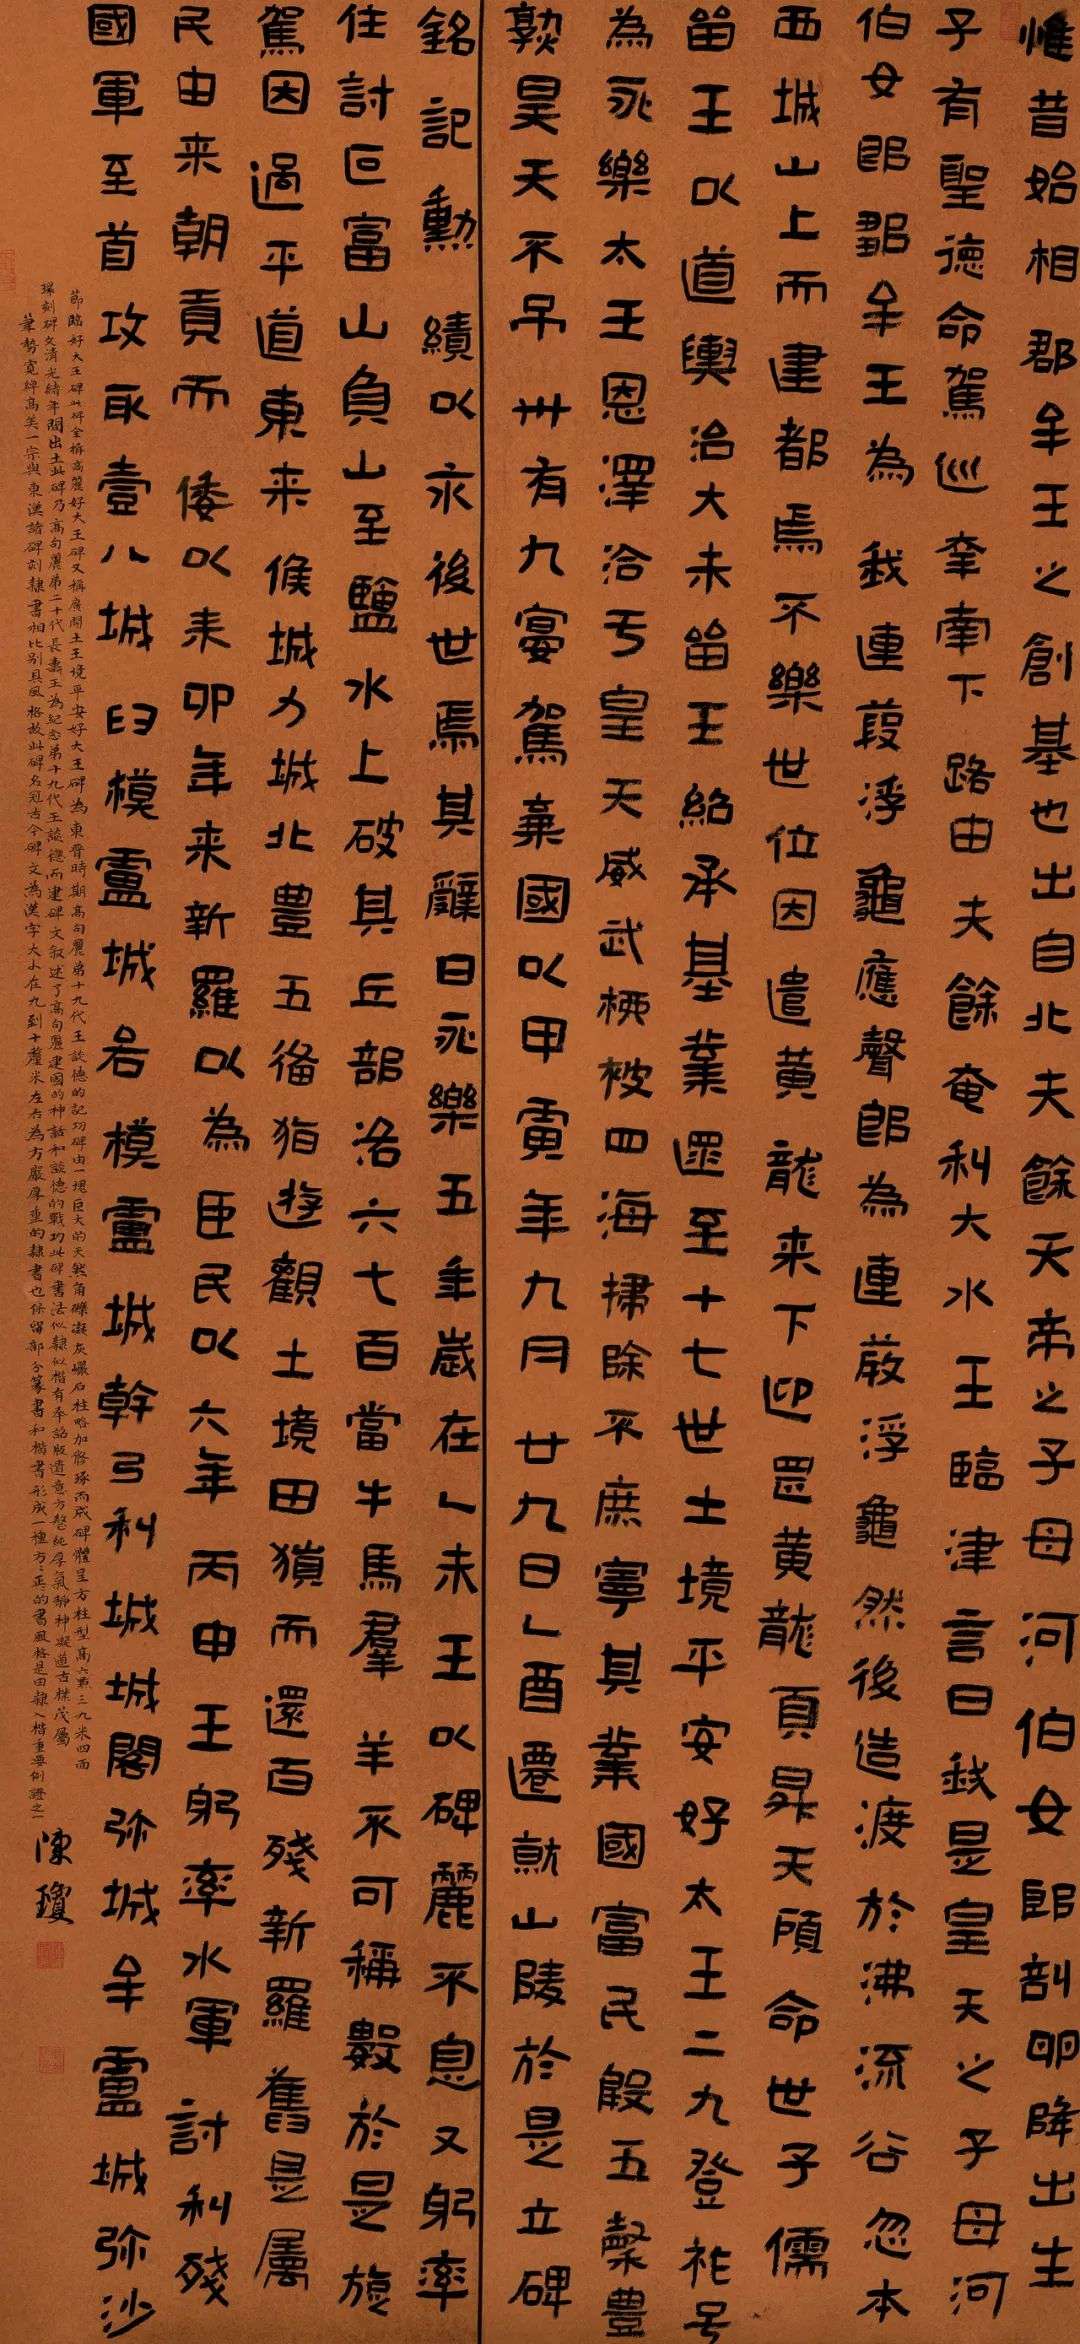 惟昔始祖鄒牟王之創基也出自北夫餘天帝之子母河伯女郎剖卵降出生
子有聖德命駕巡車南下路由夫餘奄利大水王臨津言曰我是皇天之子母河
伯女郎鄒牟王為我連葭浮龜應聲即為連葭浮龜然後造渡於沸流谷忽本
西城山上而建都焉不樂世位因遣黄龍来下迎王黄龍頁昇天顧命世子儒
留王以道輿治大朱留王紹承基業遝至十七世土境平安好太王二九登祚号
為永樂太王恩澤洽于皇天威武柳被四海掃除不庶寧其業國富民殷五穀豊
熟昊天不弔卅有九宴駕棄國以甲寅年九月廿九日乚酉遷就山陵於是立碑
銘記勳績以永後世焉其辭曰永樂五年歲在乚未王以碑麗不息又躬率
住討叵富山負山至鹽水上破其丘部洛六七百當牛馬羣羊不可稱數於是旋
駕因過平道東来候城力城北豊五備猶遊觀土境田獵而還百殘新羅舊是屬
民由来朝貢而倭以耒卯年来新羅以為臣民以六年丙申王躬率水軍討利殘
國軍至首攻取壹八城臼模盧城各模盧城幹弓利城城閣弥城牟盧城弥沙
節臨好大王碑此碑全稱高麗好大王碑又稱廣開土王境平安好大王碑為東晉時期高句麗第十九代王談德的記功碑由一塊巨大的天然角礫凝灰巖石柱略加修琢而成碑體呈方柱型高六點三九米四面
環刻碑文清光緒年間出土此碑乃高句麗第二十代長壽王為紀念第十九代王談德而建碑文叙述了高句麗建國的神話和談德的戰功此碑書法似隸似楷有奉詔版遺意方整純厚氣靜神凝遒古樸茂屬
筆勢寬綽高美一宗與東漢諸碑刻隸書相比别具風格故此碑名冠古今碑文為漢字大小在九到十釐米左右為方嚴厚重的隸書也保留部分篆書和楷書形成一種方方正正的書風格是由隸入楷重要例證之一
陳瓊